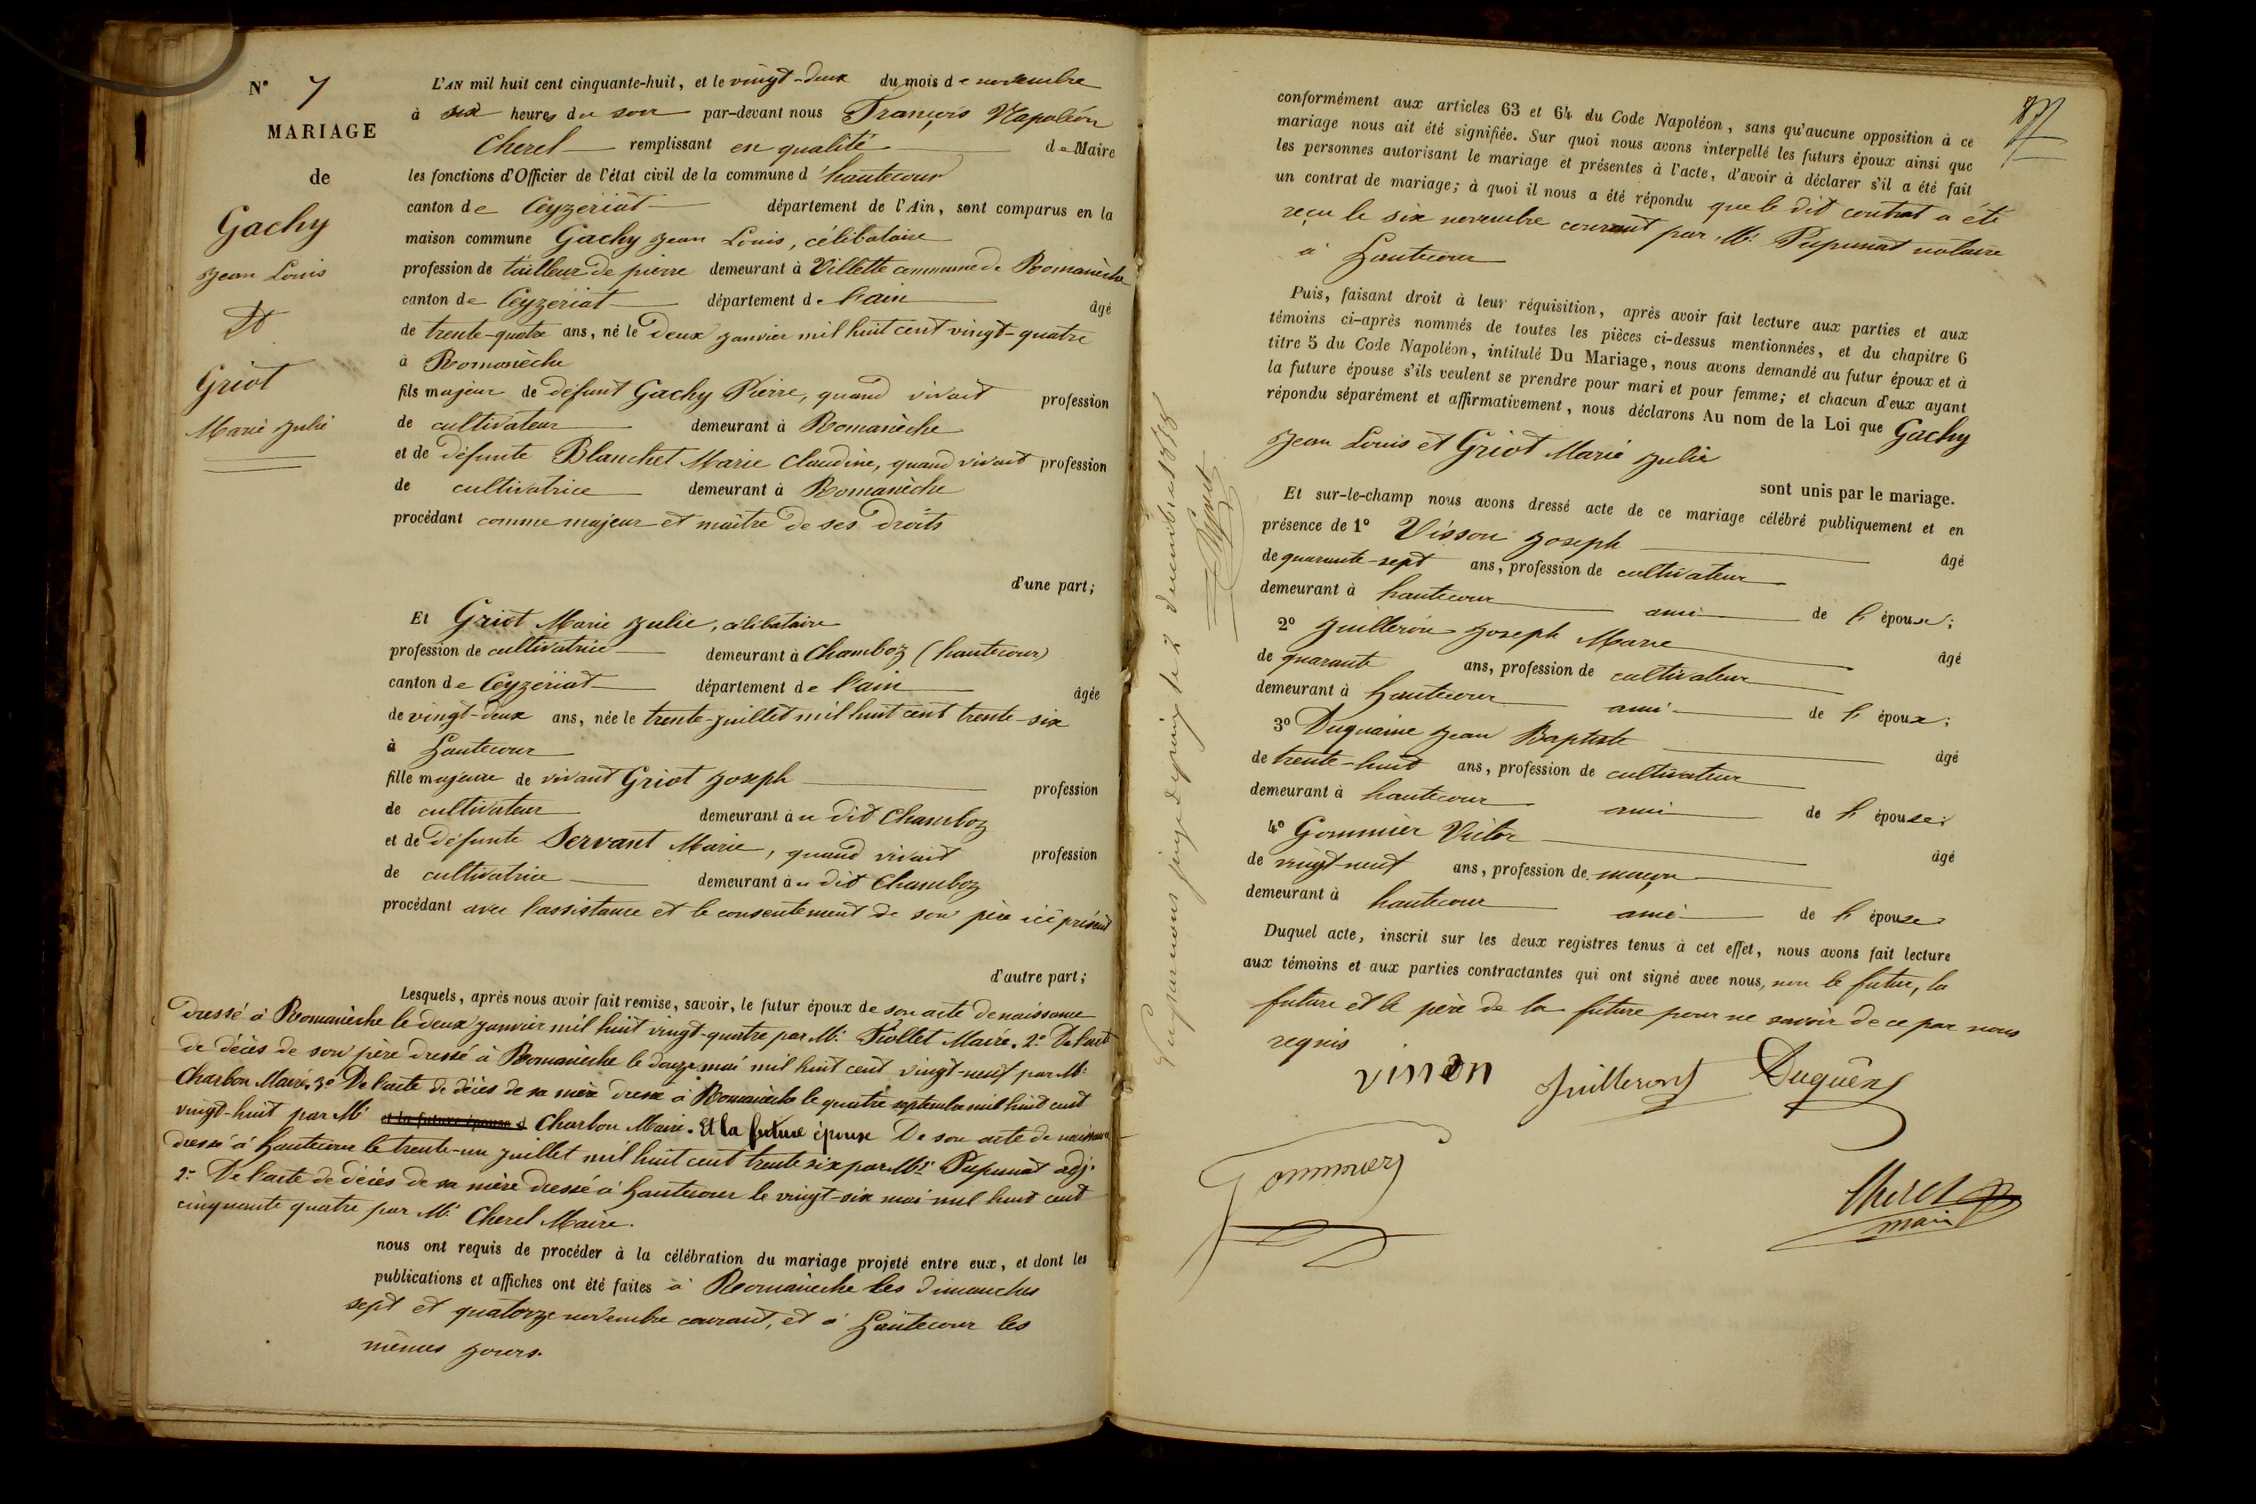 N° 7
MARIAGE
de
Gachy
Jean Louis
Et
Griot
Marie Julie
L'AN mil huit cent cinquante-huit, et le vingt-deux du mois de novembre
à six heures du soir par-devant nous François Napoléon
Cherel remplissant en qualité de Maire
les fonctions d'Officier de l'état civil de la commune d'hautecour
canton de Ceyzeriat département de l'Ain, sont comparus en la
maison commune Gachy Jean Louis, célibataire
profession de tailleur de pierre demeurant à Villette commune de Romanèche
canton de Ceyzeriat département de l'ain âgé
de trente-quatre ans, né le deux janvier mil huit cent vingt-quatre
à Romanèche
fils majeur de défunt Gachy Pierre, quand vivait profession
de cultivateur demeurant à Romanèche
et de défunte Blanchet Marie Claudine, quand vivait profession
de cultivatrice demeurant à Romanèche
procédant comme majeur et maître de ses droits
d'une part;
Et Griot Marie Julie, célibataire
profession de cultivatrice demeurant à Chamboz (hautecour)
canton de Ceyzeriat département de l'ain âgée
de vingt-deux ans, née le trente-juillet mil huit cent trente-six
à hautecour
fille majeure de vivant Griot Joseph profession
de cultivateur demeurant à u dit Chamboz
et de défunte Servant Marie, quand vivait profession
de cultivatrice demeurant à u dit Chamboz
procédant avec l'assistance et le consentement de son père ici présent
d'autre part;
Lesquels, après nous avoir fait remise, savoir, le futur époux de son acte de naissance
dressé à Romanèche le deux janvier mil huit vingt-quatre par Mr. Maire. 2° De l'acte
de décès de son père dressé à Romanèche le douze mai mil huit cent vingt-neuf par Mr.
Charbon Maire. 3° De l'acte de décès de sa mère dressé à Romanèche le quatre septembre mil huit cent
vingt-huit par Mr et la future épouse d Charbon Maire. Et la future épouse De son acte de naissance
dressé à hautecour le trente-un juillet mil huit cent trente six par Mr Pupunat adj.
2° De l'acte de décès de sa mère dressé à hautecour le vingt-six mai mil huit cent
cinquante quatre par Mr. Cherel Maire.
nous ont requis de procéder à la célébration du mariage projeté entre eux, et dont les
publications et affiches ont été faites à Romanèche les dimanches
sept et quatorze novembre courant, et à hautecour les
mêmes jours.
conformément aux articles 63 et 64 du Code Napoléon, sans qu'aucune opposition à ce
mariage nous ait été signifiée. Sur quoi nous avons interpellé les futurs époux ainsi que
les personnes autorisant le mariage et présentes à l'acte, d'avoir à déclarer s'il a été fait
un contrat de mariage; à quoi il nous a été répondu que le dit contrat a été
reçu le six novembre courant par Mr. Pupunat notaire
à hautecour
Puis, faisant droit à leur réquisition, après avoir fait lecture aux parties et aux
témoins ci-après nommés de toutes les pièces ci-dessus mentionnées, et du chapitre 6
titre 5 du Code Napoléon, intitulé Du Mariage, nous avons demandé au futur époux et à
la future épouse s'ils veulent se prendre pour mari et pour femme; et chacun d'eux ayant
répondu séparément et affirmativement, nous déclarons Au nom de la Loi que Gachy
Jean Louis et Griot Marie Julie
sont unis par le mariage.
Et sur-le-champ nous avons dressé acte de ce mariage célébré publiquement et en
présence de 1° Visson Joseph âgé
de quarante-sept ans, profession de cultivateur
demeurant à hautecour ami de l'épouse;
2° Juilleron Joseph Marie âgé
de quarante ans, profession de cultivateur
demeurant à hautecour ami de l'époux;
3° Duquaine Jean Baptiste âgé
de trente-huit ans, profession de cultivateur
demeurant à hautecour ami de l'épouse;
4° Gommier Victor âgé
de vingt-neuf ans, profession de maçon
demeurant à hautecour ami de l'épouse
Duquel acte, inscrit sur les deux registres tenus à cet effet, nous avons fait lecture
aux témoins et aux parties contractantes qui ont signé avec nous, non le futur, la
future et le père de la future pour ne savoir de ce par nous
requis
visson Juilleront Duquêne
Gommier
Cherel
maire